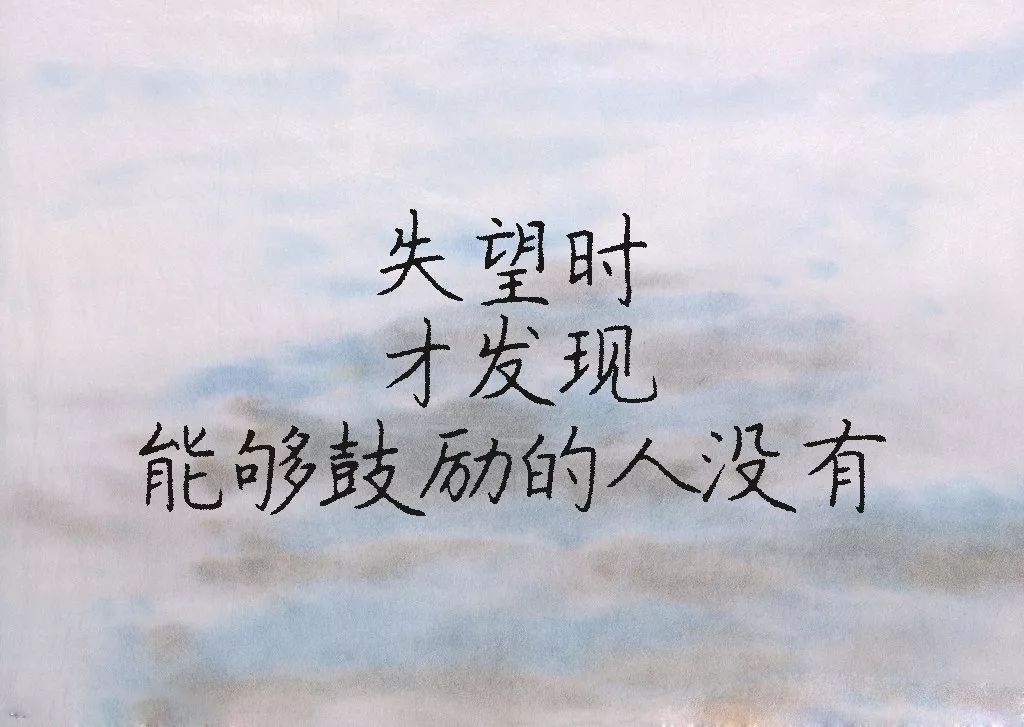 失望时
才发现
能够鼓励的人没有